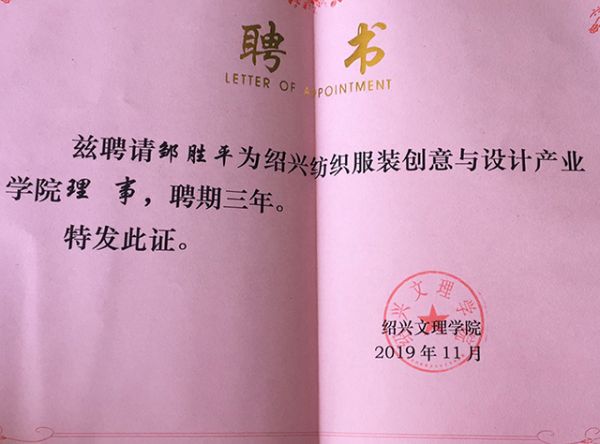 聘 书
LETTER OF APPOINTMENT
兹聘请邹胜平为绍兴纺织服装创意与设计产业
学院理 事，聘期三年。
特发此证。
绍兴文理学院
绍兴文理学院
2019年11月